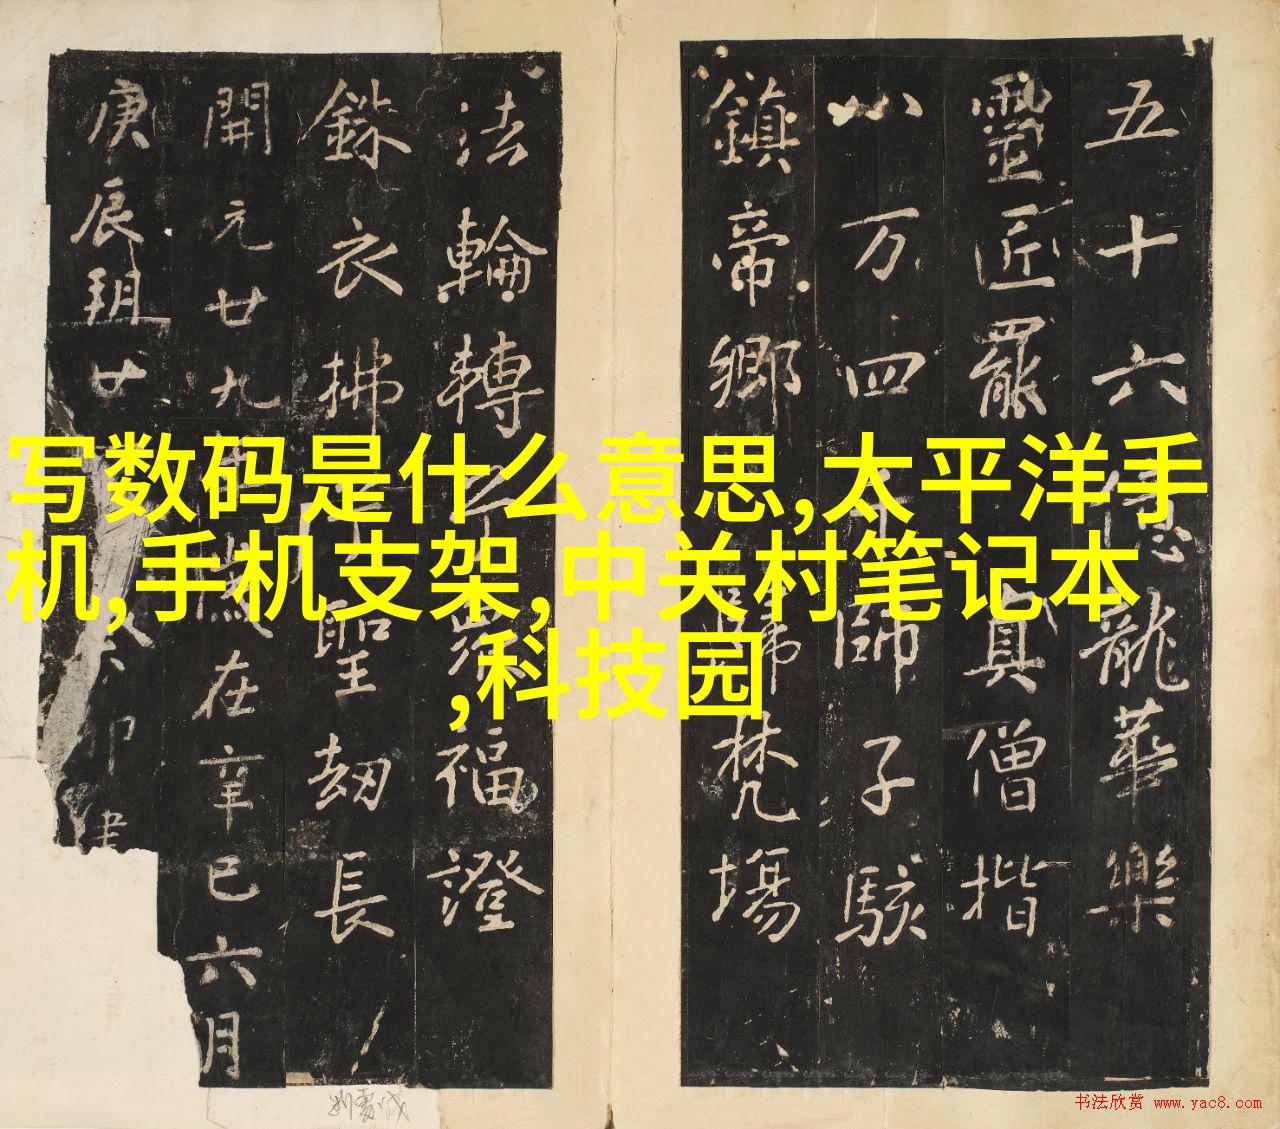 五十六億龍華樂
靈匠罷
真僧揩
八万四
師子駭
鎮帝鄉
歸梵場
法輪轉
福證
銖衣拂
聖劫長
開元廿九年
在辛巳六月
庚辰朔廿
写数码是什么意思,太平洋手
机,手机支架,中关村笔记本
,科技园
书法欣赏 www.yac8.com